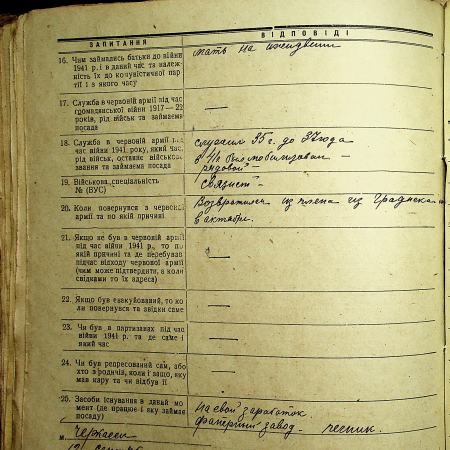 ЗАПИТАННЯ
ВІДПОВІДІ
16. Чим займались батьки до війни
1941 р. і в даний час та належ-
ність їх до комуністичної пар-
тії і з якого часу
мать на иждивении
17. Служба в червоній армії під час
громадянської війни 1917—22
років, рід військ та займаєма
посада
—
18. Служба в червоній армії під
час війни 1941 року, який час,
рід військ, останнє військове
звання та займаєма посада
служил 35 г. до 37 года
в 41 был мобилизован —
рядовой
19. Військова спеціальність
№ (ВУС)
связист —
20. Коли повернувся з червоної
армії та по якій причині
Возвратился из плена из
в октябри.
21. Якщо не був в червоній армії
під час війни 1941 р., то по
якій причині та де перебував
підчас відходу червоної армії
(чим може підтвердити, а коли
свідками то їх адреса)
—
22. Якщо був евакуйований, то ко-
ли повернувся та звідки саме
—
23. Чи був в партизанах під час
війни 1941 р. та де саме і
який час
—
24. Чи був репресований сам, або
хто з родичів, коли і за що, яку
мав кару та чи відбув її
—
25. Засоби існування в даний мо-
мент (де працює і яку займає
посаду)
на свой заработок
фанерний завод —
м. Черкаси